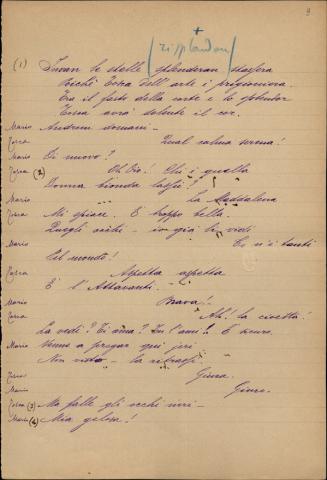 9
+
(risplendon)
(1) Invan le stelle splenderan stasera
Poichè Tosca dell'arte è prigioniera
Tra il fasto della corte e lo splendor
Tosca avrà dolente il cor.
Mario Andrem domani –
Tosca Qual calma serena!
Mario Di nuovo?
Tosca (2) Oh Dio! Chi è quella
Donna bionda lassù?
Mario La Maddalena
Tosca Mi spiace. È troppo bella.
Quegli occhi – io già li vidi
Mario Ce n'è tanti
Pel mondo!
Tosca Aspetta aspetta
È l'Attavanti.
Mario Brava!
Tosca Ah! la civetta!
La vedi? Ti ama? Tu l'ami?
Mario Venne a pregar qui jeri
Non vista – la ritrassi
Tosca Giura.
Mario Giuro.
Tosca (3) Ma falle gli occhi neri –
Mario (4) Mia gelosa!